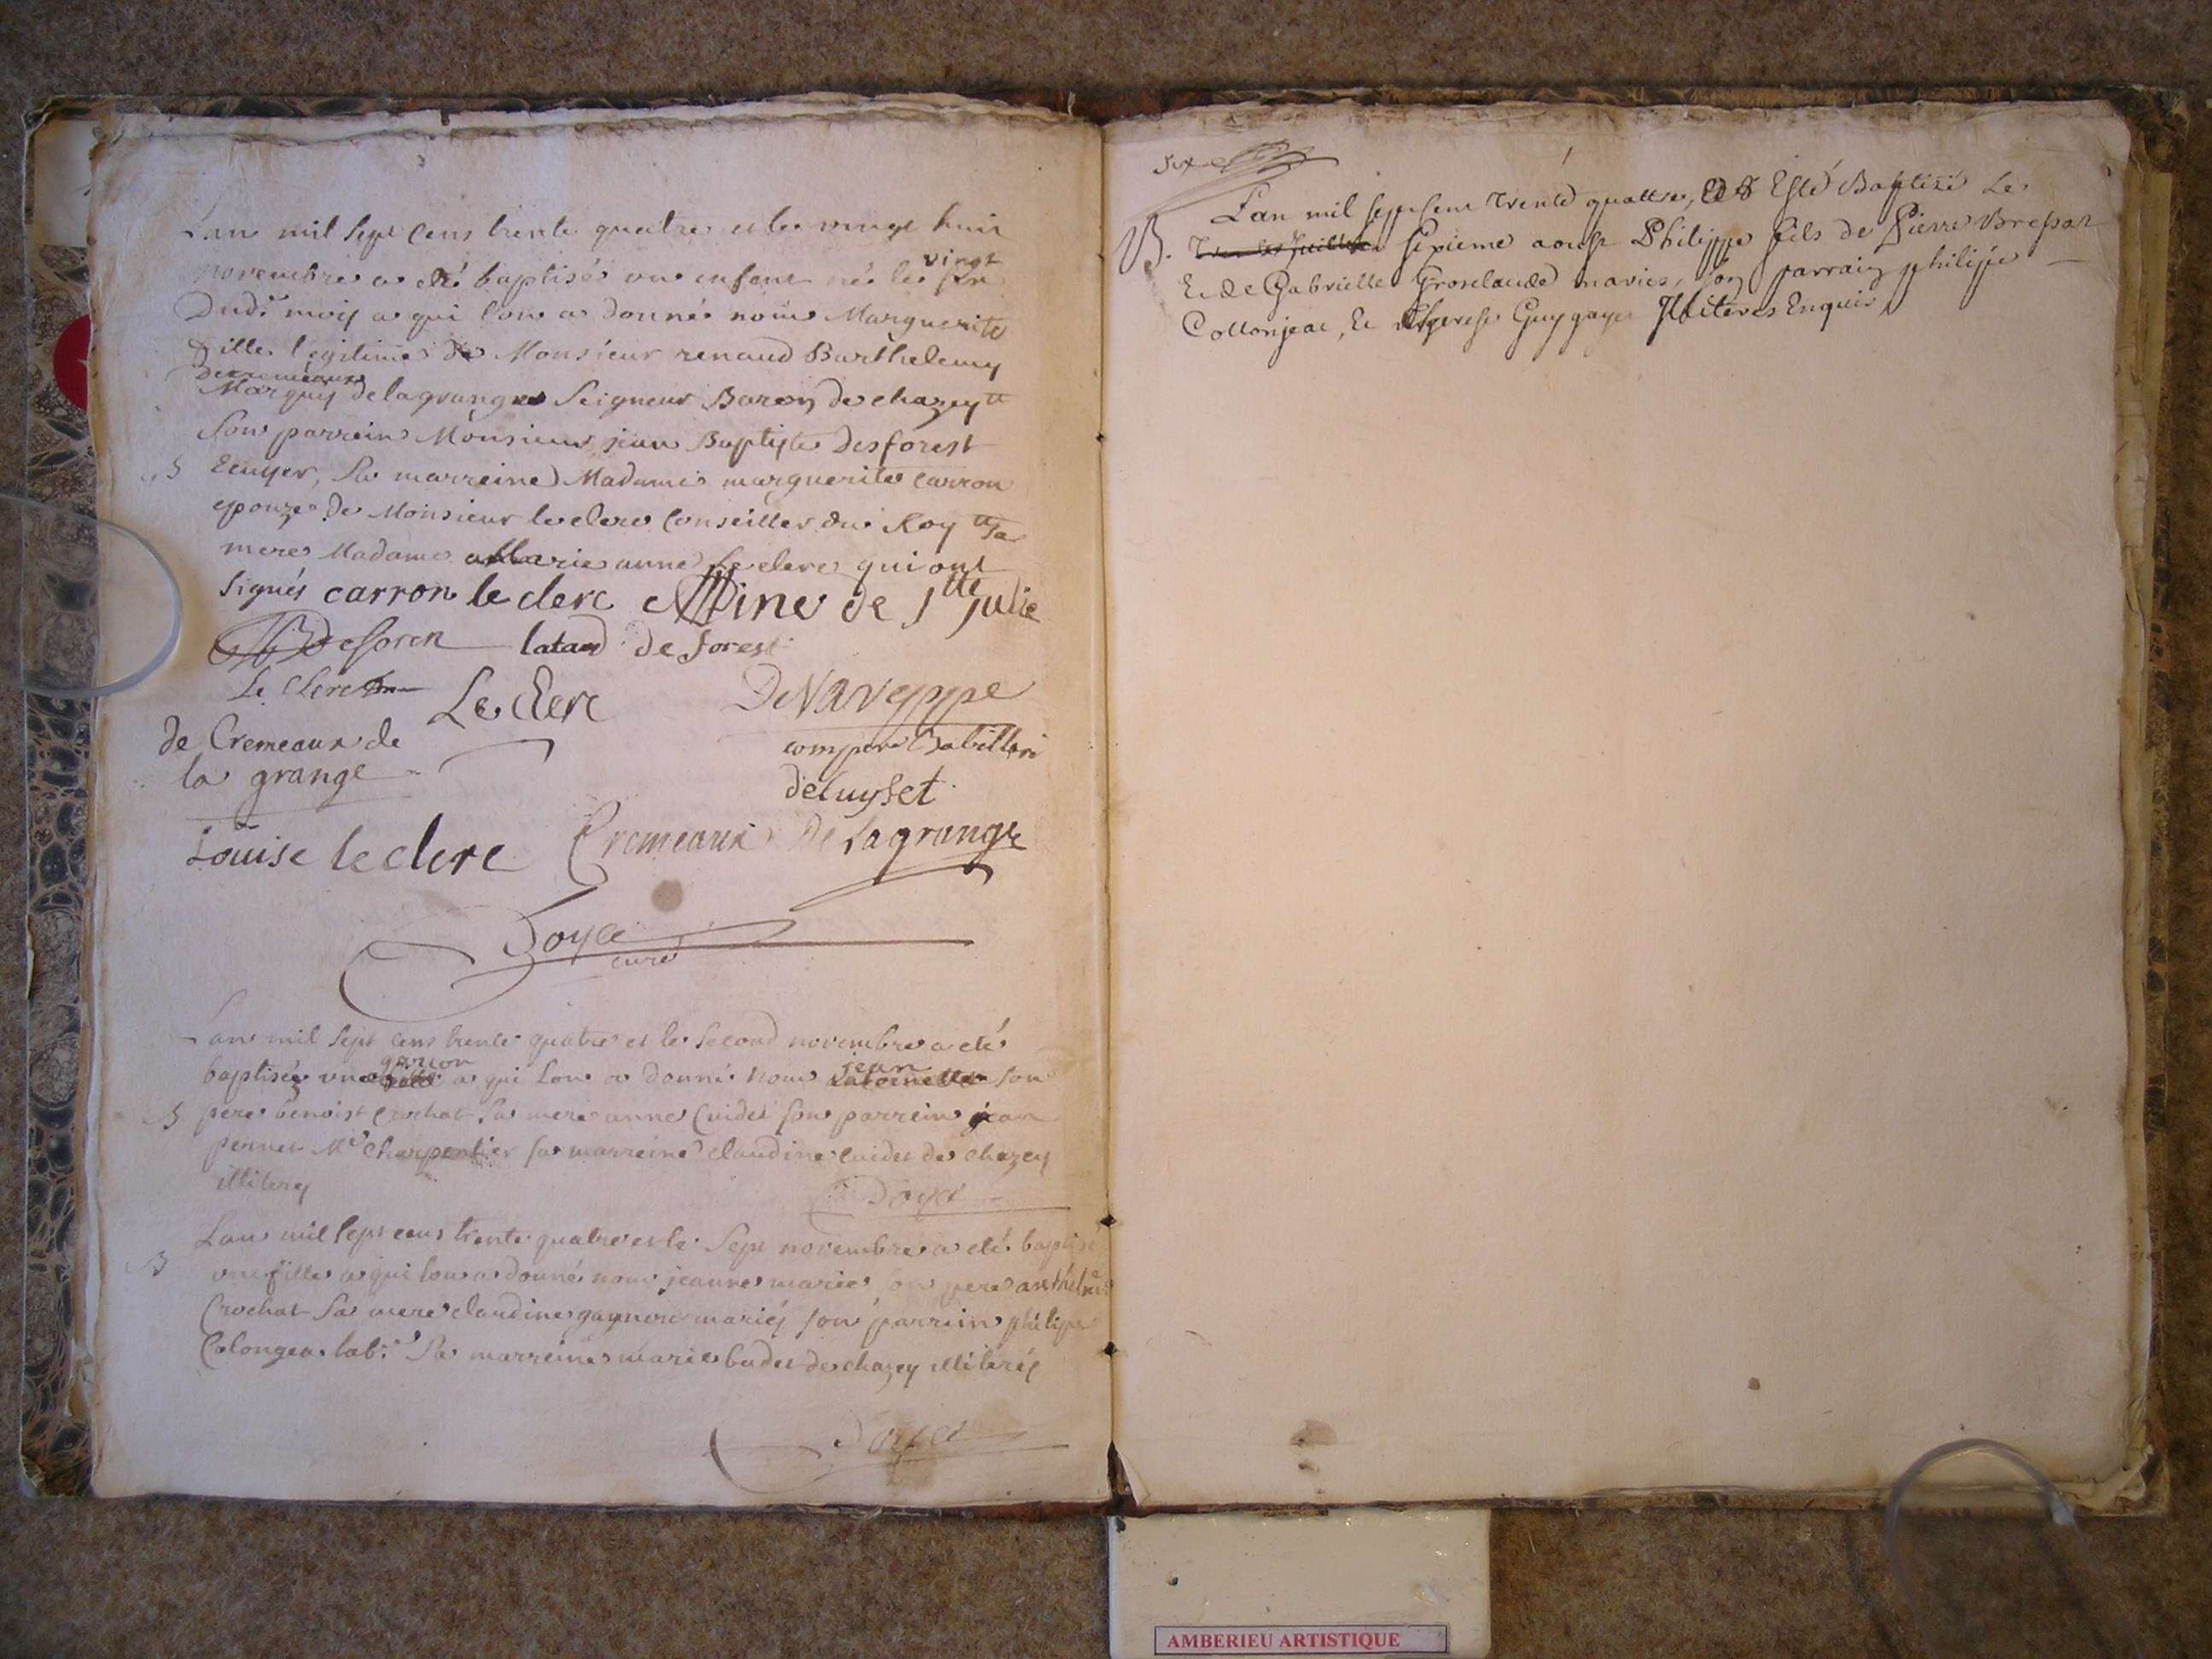 Lan mil sept cens trente quatre et le vingt huit
novembre a eté baptisé un enfant né le vingt
Dudt mois a qui l'on a donné nom Marguerite
fille légitime de Monsieur renaud Barthelemy
de cremeaux
Marquis de lagrange Seigneur Baron de chazey tt
Son parrein Monsieur jean Baptiste Desforest
B Ecuyer, Sa marreine Madame marguerite carron
epouze De Monsieur le clerc Conseiller du Roy tt Sa
mere Madame marie anne Le clerc qui ont
signés carron le clerc de Stte julie
de forest
Le Clerc Le Clerc
de Cremeaux de compere
la grange deluyset
Louise le clerc Cremeaux De Lagrange
Doya
curé
Lan mil sept cens trente quatre et le second novembre a eté
garcon jean
baptisés une a qui lon a donné nom Son
B pere benoist Crochat Sa mere anne Cuidet son parrein jean
pernet Me Charpentier sa marreine claudine cuidet de chazey
illiterés
Doya
Lan mil sept cens trente quatre et le Sept novembre a eté baptisé
B une fille a qui lon a donné nom jeanne marie son pere anthelme
Crochat Sa mere claudine gagneur mariés son parrein philipe
Colongea labr Sa marreine marie budet de chazey illitérés
Doya
Lan mil sept cent trente quattre, Est Esté Baptizé Le
B. sixieme aoust Philippe fils de Pierre Bressat
Et de Gabrielle Groslaude maries, son parrain philippe
Collonjeat, Et Guygaye Illiteres Enquis
AMBERIEU ARTISTIQUE